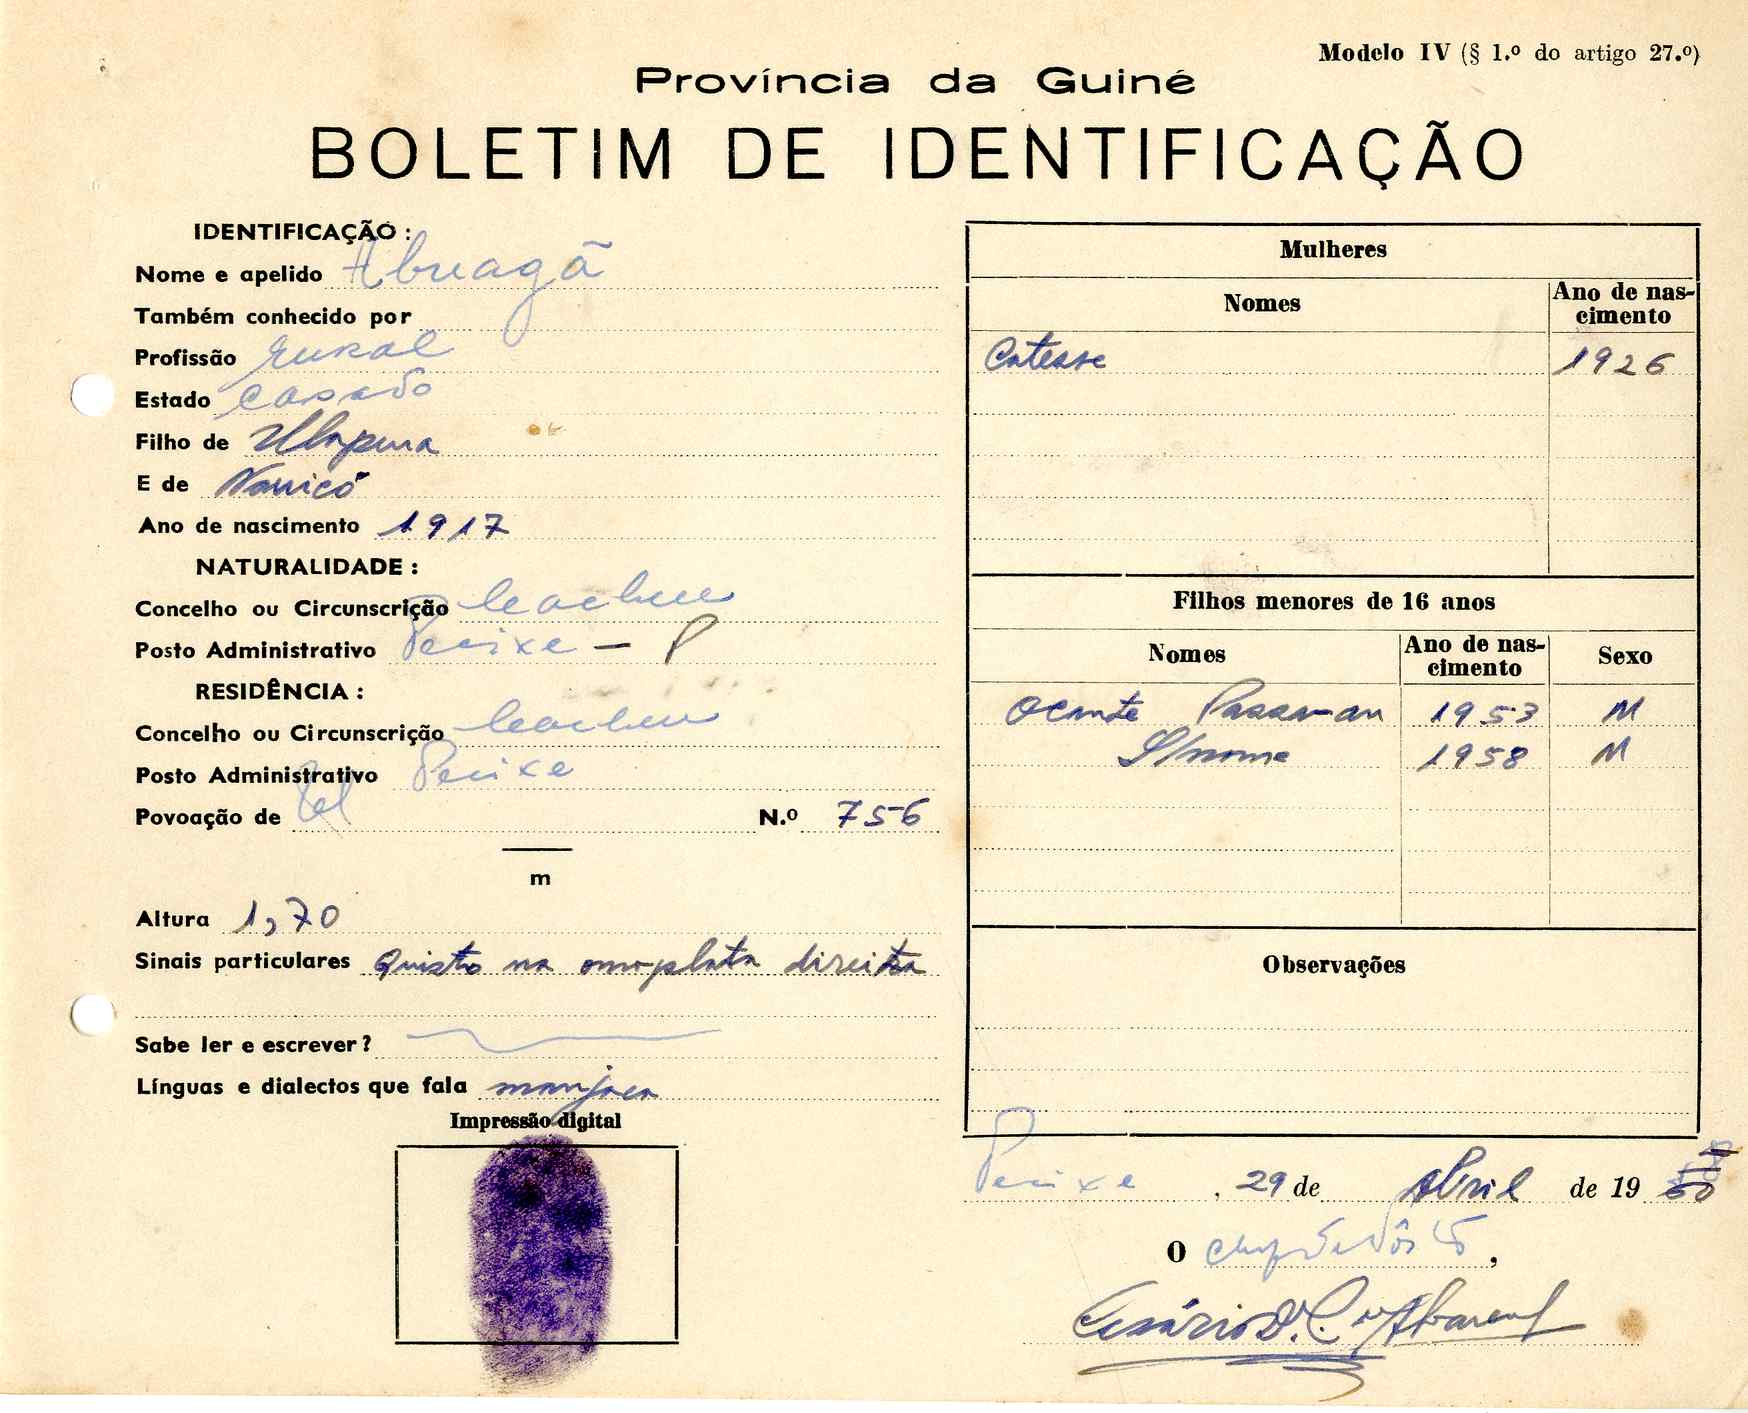 Modelo IV (§ 1.º do artigo 27.º)
Província da Guiné
BOLETIM DE IDENTIFICAÇÃO
IDENTIFICAÇÃO :
Nome e apelido Abuagã
Também conhecido por
Profissão rural
Estado casado
Filho de
E de
Ano de nascimento 1917
NATURALIDADE :
Concelho ou Circunscrição Cacheu
Posto Administrativo Pecixe — P
RESIDÊNCIA :
Concelho ou Circunscrição Cacheu
Posto Administrativo Pecixe
Povoação de N.º 756
m
Altura 1,70
Sinais particulares Quisto na omoplata direita
Sabe ler e escrever?
Línguas e dialectos que fala manjaca
Impressão digital
Mulheres
Nomes Ano de nas-
cimento
Catesse 1926
Filhos menores de 16 anos
Nomes Ano de nas-
cimento Sexo
Ocante 1953 M
S/nome 1958 M
Observações
Pecixe, 29 de Abril de 19
O chefe de Pôsto,
Cesário